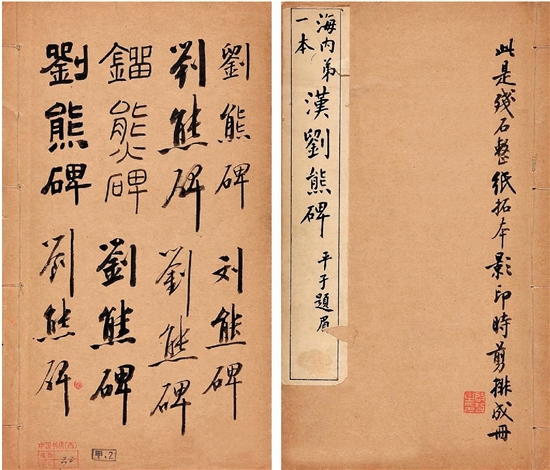 此是殘石整紙拓本影印時剪排成冊
海内弟
一本
漢劉熊碑
平子題眉
劉熊碑
刘熊碑
刘熊碑
劉熊碑
鎦熊碑
劉熊碑
劉熊碑
劉熊碑
甲.2